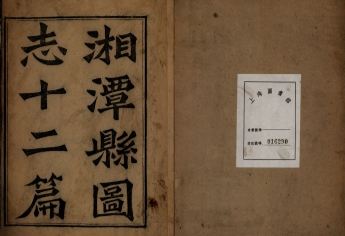 湘潭縣圖
志十二篇
上海圖書館
016290